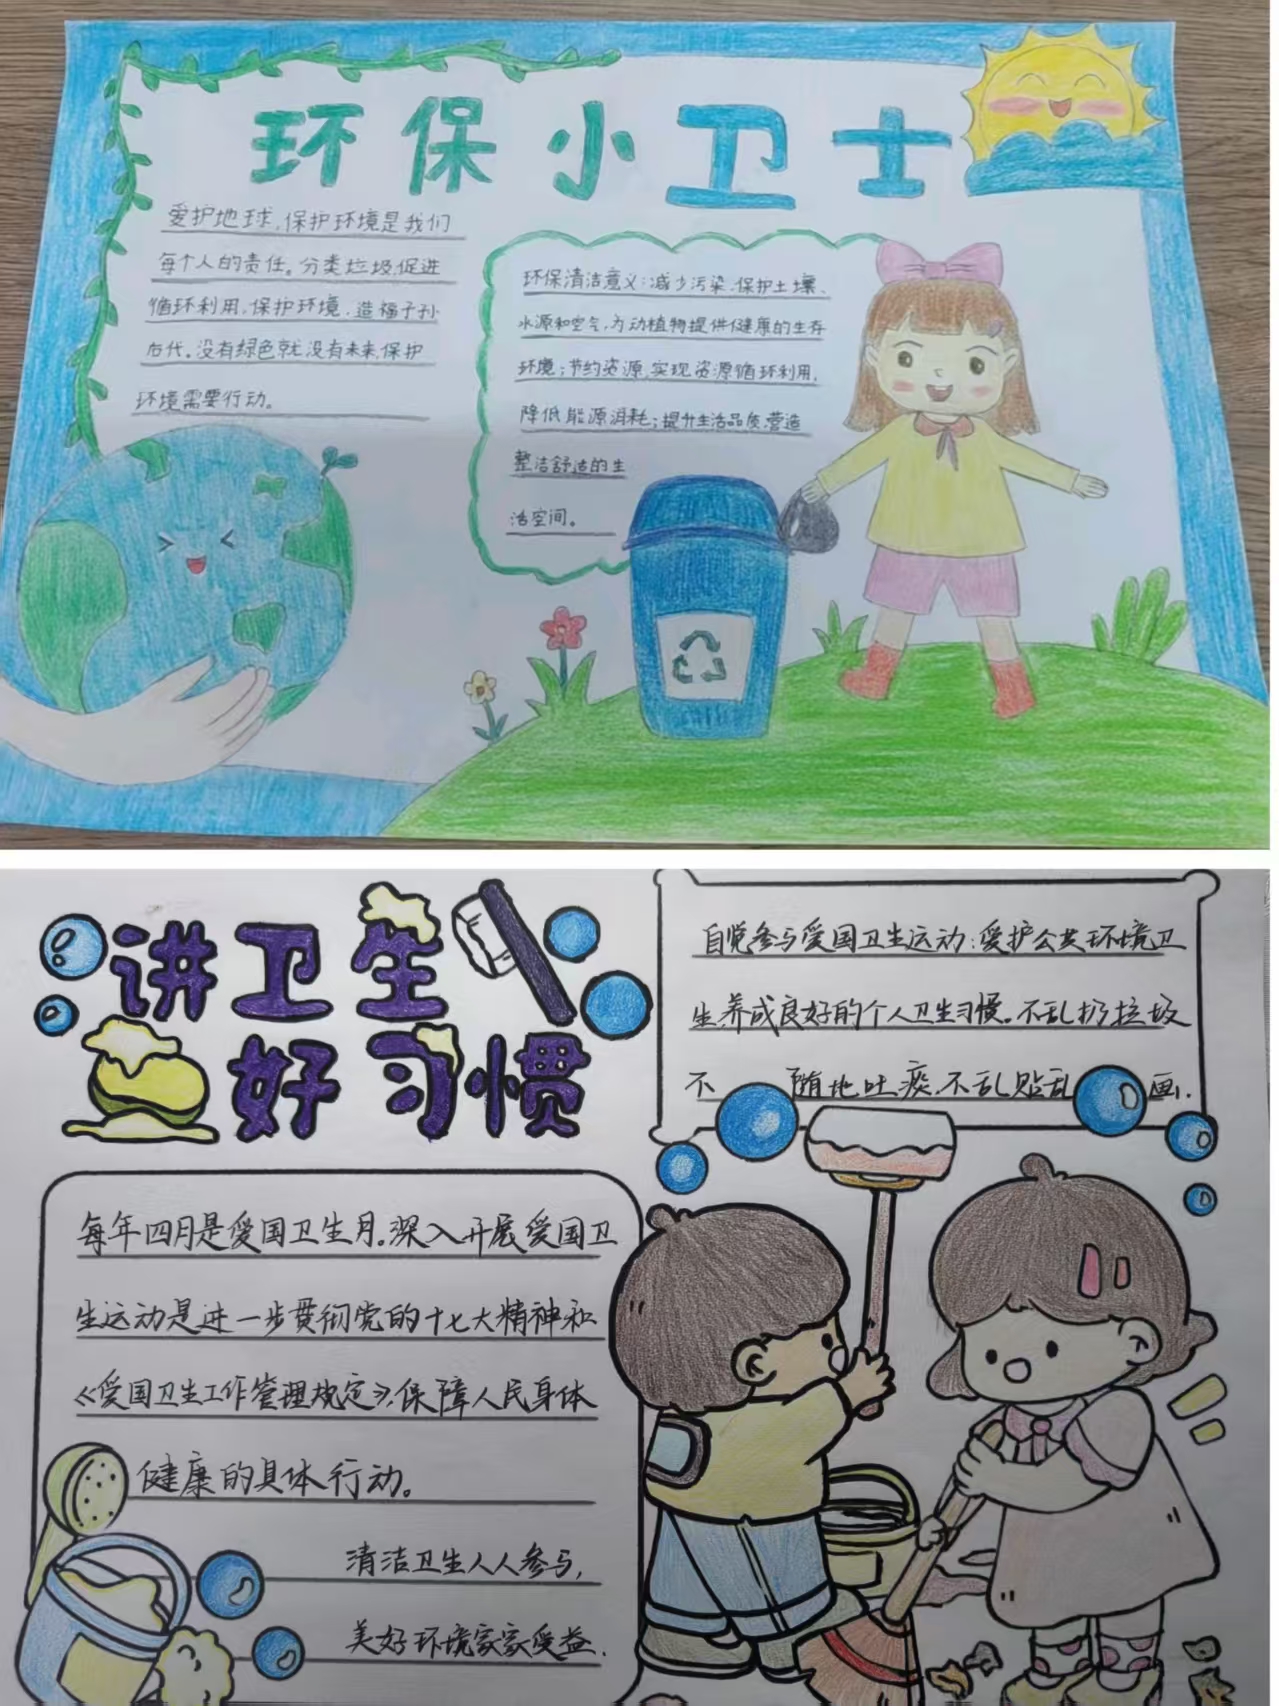 环保小卫士
爱护地球,保护环境是我们
每个人的责任。分类垃圾,促进
循环利用,保护环境,造福子孙
后代。没有绿色就没有未来,保护
环境需要行动。
环保清洁意义:减少污染,保护土壤、
水源和空气,为动植物提供健康的生存
环境;节约资源,实现资源循环利用,
降低能源消耗;提升生活品质,营造
整洁舒适的生
活空间。
讲卫生
好习惯
自觉参与爱国卫生运动:爱护公共环境卫
生,养成良好的个人卫生习惯。不乱扔垃圾
不 随地吐痰,不乱贴乱 画.
每年四月是爱国卫生月。深入开展爱国卫
生运动是进一步贯彻党的十七大精神和
《爱国卫生工作管理规定》,保障人民身体
健康的具体行动。
清洁卫生人人参与,
美好环境家家受益.